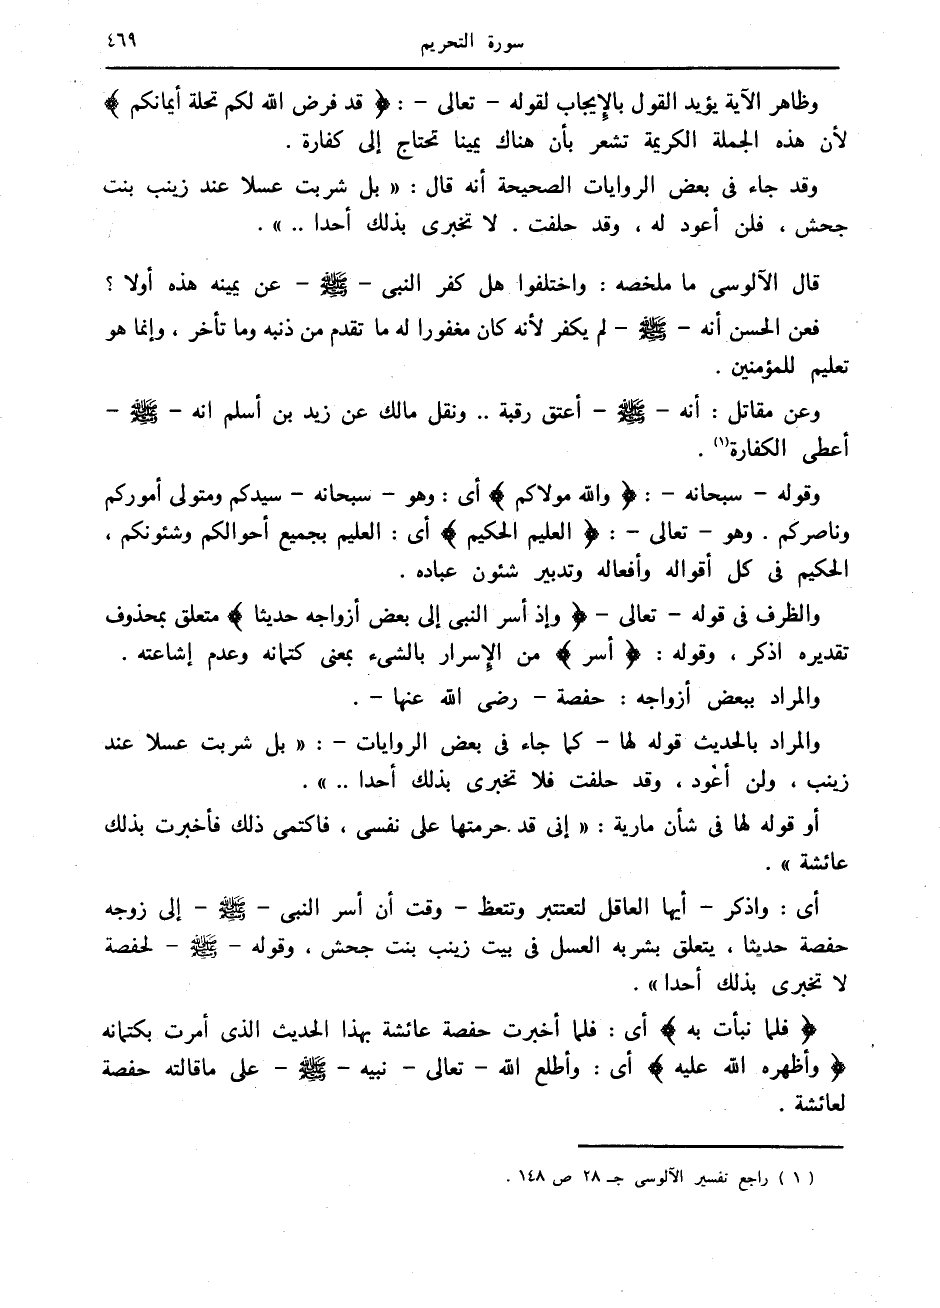 سورة التحريم
٤٦٩
وظاهر الآية يؤيد القول بالإيجاب لقوله – تعالى – : ﴿ قد فرض الله لكم تحلة أيمانكم ﴾
لأن هذه الجملة الكريمة تشعر بأن هناك يمينا تحتاج إلى كفارة .
وقد جاء فى بعض الروايات الصحيحة أنه قال : « بل شربت عسلا عند زينب بنت
جحش ، فلن أعود له ، وقد حلفت . لا تخبرى بذلك أحدا .. » .
قال الآلوسى ما ملخصه : واختلفوا هل كفر النبى – ﷺ – عن يمينه هذه أولا ؟
فعن الحسن أنه – ﷺ – لم يكفر لأنه كان مغفورا له ما تقدم من ذنبه وما تأخر ، وإنما هو
تعليم للمؤمنين .
وعن مقاتل : أنه – ﷺ – أعتق رقبة .. ونقل مالك عن زيد بن أسلم انه – ﷺ –
أعطى الكفارة(١) .
وقوله – سبحانه – : ﴿ والله مولاكم ﴾ أى : وهو – سبحانه – سيدكم ومتولى أموركم
وناصركم . وهو – تعالى – : ﴿ العليم الحكيم ﴾ أى : العليم بجميع أحوالكم وشئونكم ،
الحكيم فى كل أقواله وأفعاله وتدبير شئون عباده .
والظرف فى قوله – تعالى – ﴿ وإذ أسر النبى إلى بعض أزواجه حديثا ﴾ متعلق بمحذوف
تقديره اذكر ، وقوله : ﴿ أسر ﴾ من الإسرار بالشىء بمعنى كتمانه وعدم إشاعته .
والمراد ببعض أزواجه : حفصة – رضى الله عنها – .
والمراد بالحديث قوله لها – كما جاء فى بعض الروايات – : « بل شربت عسلا عند
زينب ، ولن أعود ، وقد حلفت فلا تخبرى بذلك أحدا .. » .
أو قوله لها فى شأن مارية : « إنى قد حرمتها على نفسى ، فاكتمى ذلك فأخبرت بذلك
عائشة » .
أى : واذكر – أيها العاقل لتعتتبر وتتعظ – وقت أن أسر النبى – ﷺ – إلى زوجه
حفصة حديثا ، يتعلق بشربه العسل فى بيت زينب بنت جحش ، وقوله – ﷺ – لحفصة
لا تخبرى بذلك أحدا» .
﴿ فلما نبأت به ﴾ أى : فلما أخبرت حفصة عائشة بهذا الحديث الذى أمرت بكتمانه
﴿ وأظهره الله عليه ﴾ أى : وأطلع الله – تعالى – نبيه – ﷺ – على ماقالته حفصة
لعائشة .
( ١ ) راجع تفسير الآلوسى جـ ٢٨ ص ١٤٨ .